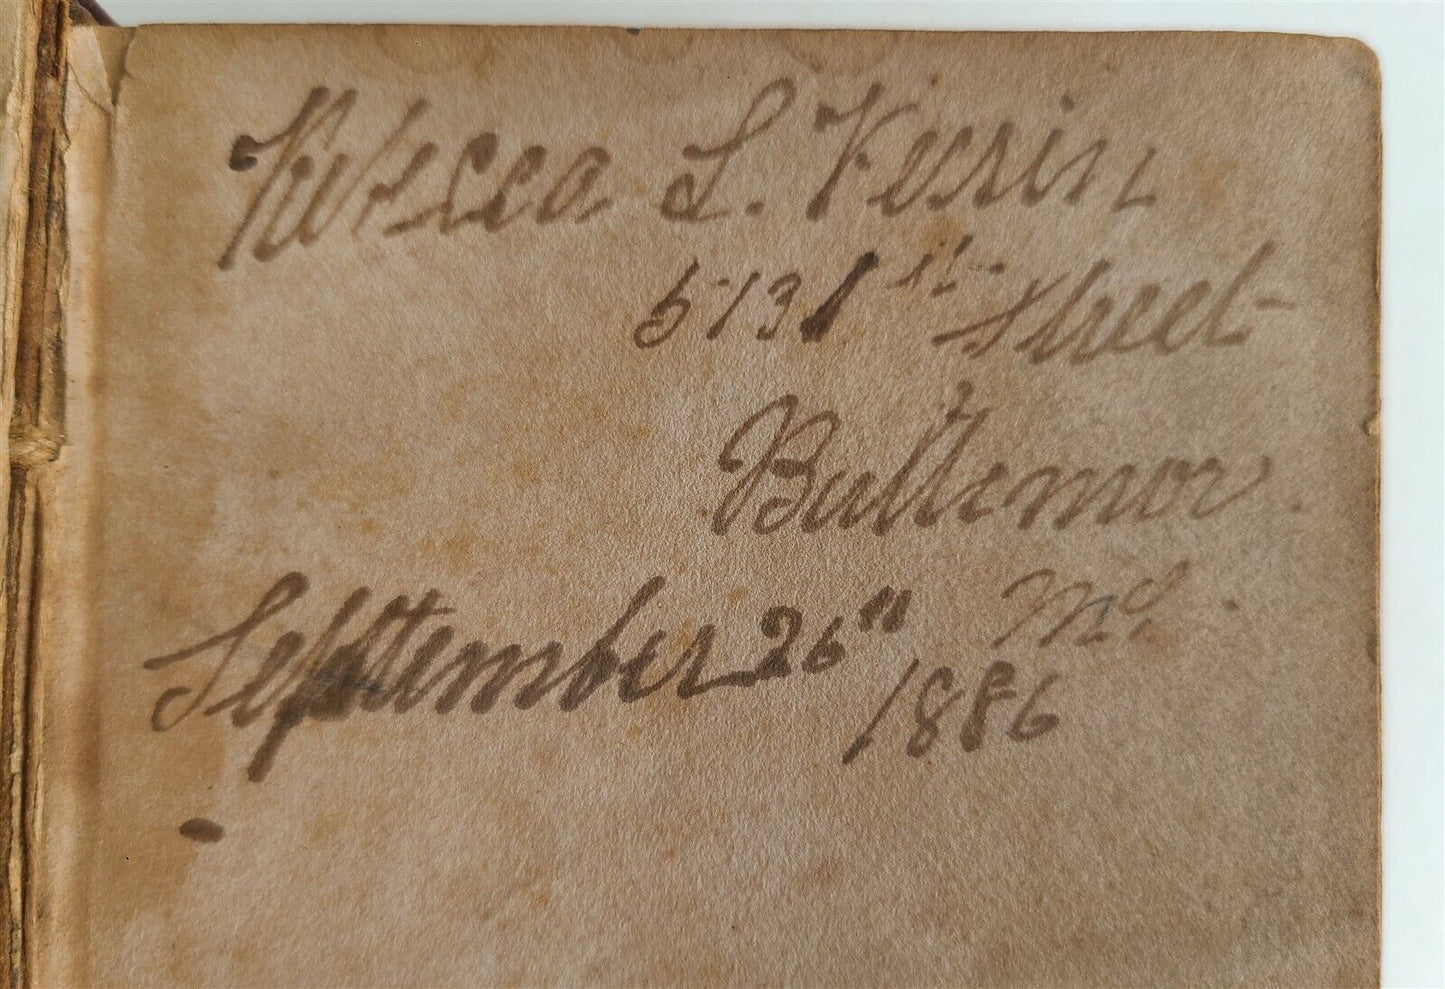 Rebecca L. Kerin
5131 st Street
Baltemor.
Md.
September 26"
1886